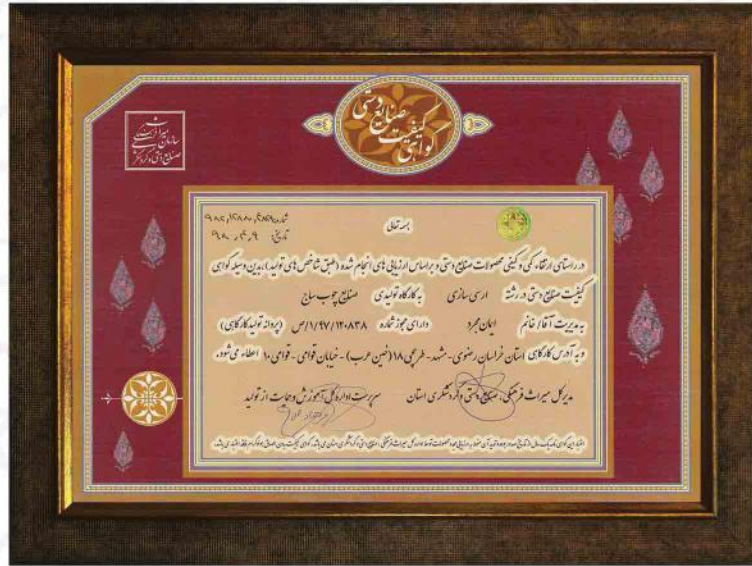 گواهی کیفیت صنایع دستی
سازمان میراث فرهنگی
صنایع دستی و گردشگری
بسمه تعالی
شماره:
تاریخ:
در راستای ارتقاء کمی و کیفی محصولات صنایع دستی و براساس ارزیابی های انجام شده (طبق شاخص های تولید)، بدین وسیله گواهی
کیفیت صنایع دستی در رشته ارسی سازی به کارگاه تولیدی صنایع چوب ساج
به مدیریت آقا/خانم ایمان مجرد دارای مجوز شماره ۱۲۰۸۳۸/۱/۹۷/ص (پروانه تولید کارگاهی)
و به آدرس کارگاهی استان خراسان رضوی - مشهد - طرحچی ۱۸ (خین عرب) - خیابان قوامی - قوامی ۱۰ اعطاء می شود.
مدیرکل میراث فرهنگی، صنایع دستی و گردشگری استان سرپرست اداره کل آموزش و حمایت از تولید